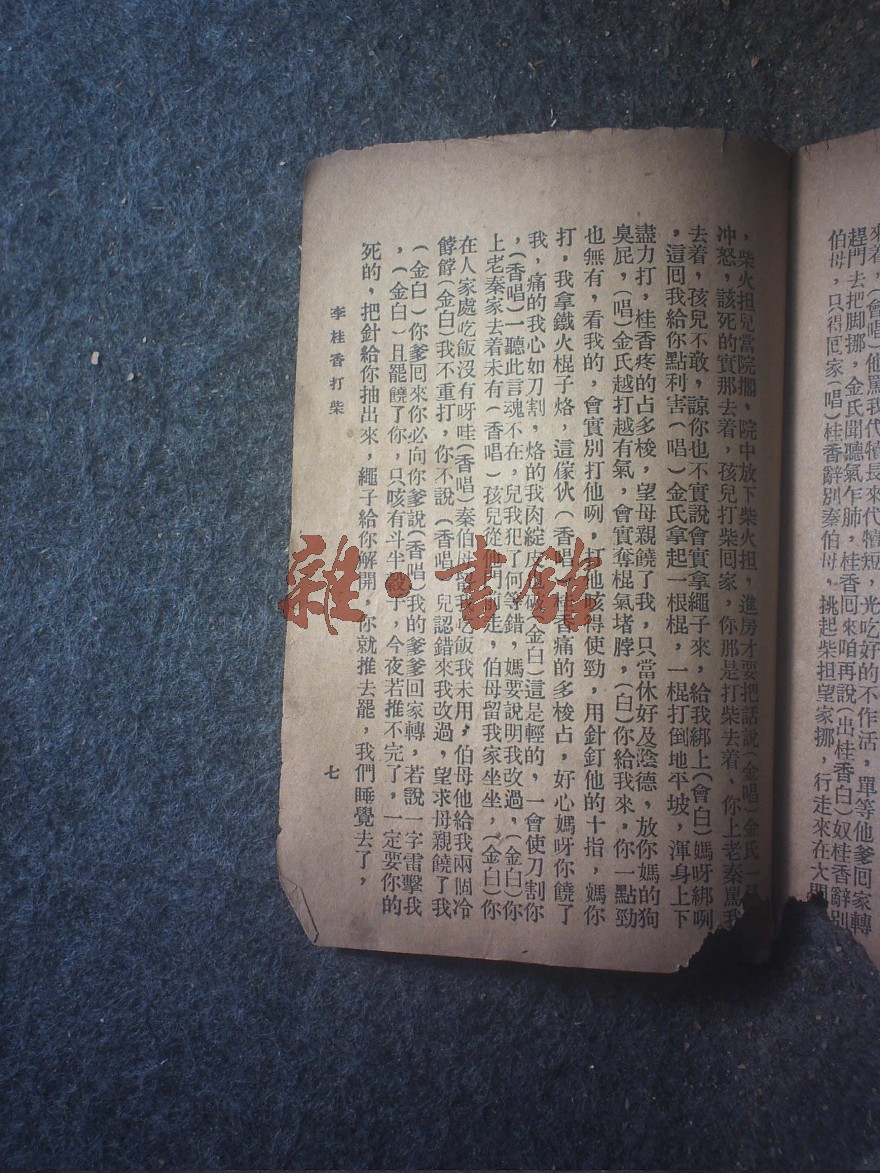 來着,(會唱)他罵我代犢長來代犢短,光吃好的不作活,單等他爹回家轉
趕門去把脚挪,金氏聞聽氣乍肺,桂香回來咱再說(出桂香白)奴桂香辭別
伯母,只得回家(唱)桂香辭別秦伯母,挑起柴担望家挪,行走來在大門
,柴火担兒當院擱,院中放下柴火担,進房才要把話說(金唱)金氏一
冲怒,該死的實那去着,孩兒打柴回家,你那是打柴去着,你上老秦罵我
去着,孩兒不敢,諒你也不實說會實拿繩子來,給我綁上(會白)媽呀綁咧
,這回我給你點利害(唱)金氏拿起一根棍,一棍打倒地平坡,渾身上下
盡力打,桂香疼的占多梭,望母親饒了我,只當休好及陰德,放你媽的狗
臭屁,(唱)金氏越打越有氣,會實奪棍氣堵脖,(白)你給我來,你一點勁
也無有,看我的,會實別打他咧,打他咳得使勁,用針釘他的十指,媽你
打,我拿鐵火棍子烙,這傢伙(香唱)桂香痛的多梭占,好心媽呀你饒了
我,痛的我心如刀割,烙的我肉綻皮也破(金白)這是輕的,一會使刀割你
,(香唱)一聽此言魂不在,兒我犯了何等錯,媽要說明我改過,(金白)你
上老秦家去着未有(香唱)孩兒從他們前走,伯母留我家坐坐,(金白)你
在人家處吃飯沒有呀哇(香唱)秦伯母留我吃飯我未用,伯母他給我兩個冷
餑餑(金白)我不重打,你不說(香唱)兒認錯來我改過,望求母親饒了我
(金白)你爹回來你必向你爹說(香唱)我的爹爹回家轉,若說一字雷擊我
,(金白)且罷饒了你,只咳有斗半穀子,今夜若推不完了,一定要你的
死的,把針給你抽出來,繩子給你解開,你就推去罷,我們睡覺去了,
李桂香打柴
七
雜·書館